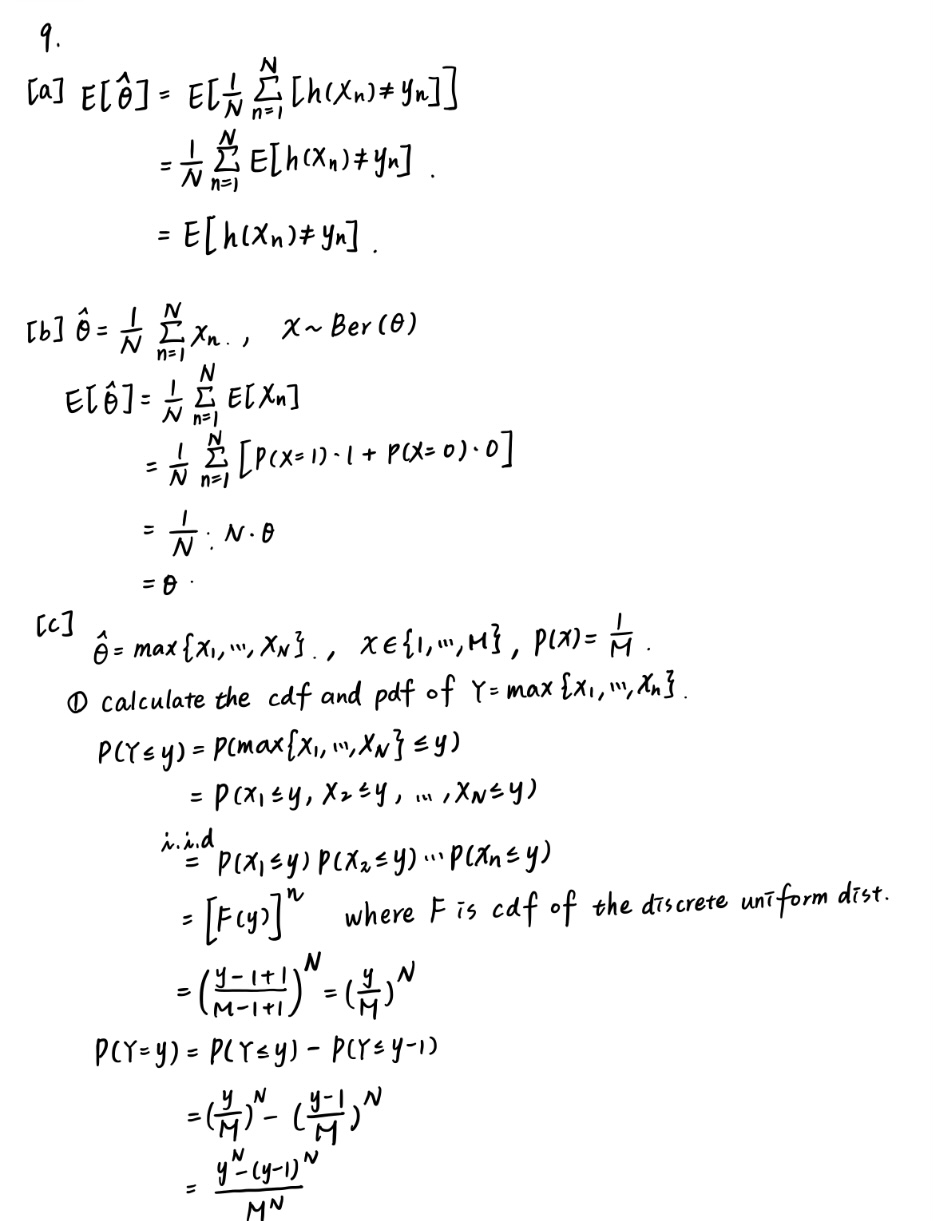 9.
[a] E[θ̂] = E[1/N Σ_{n=1}^{N} [h(Xn) ≠ yn]]
= 1/N Σ_{n=1}^{N} E[h(Xn) ≠ yn] .
= E[h(Xn) ≠ yn] .
[b] θ̂ = 1/N Σ_{n=1}^{N} Xn. , X ~ Ber(θ)
E[θ̂] = 1/N Σ_{n=1}^{N} E[Xn]
= 1/N Σ_{n=1}^{N} [P(X=1)·1 + P(X=0)·0]
= 1/N · N·θ
= θ .
[c]
θ̂ = max{X1, ..., XN}. , X ∈ {1, ..., M}, P(X) = 1/M .
① calculate the cdf and pdf of Y = max{X1, ..., Xn}.
P(Y ≤ y) = P(max{X1, ..., XN} ≤ y)
= P(X1 ≤ y, X2 ≤ y, ..., XN ≤ y)
i.i.d
= P(X1 ≤ y) P(X2 ≤ y) ... P(Xn ≤ y)
= [F(y)]^n where F is cdf of the discrete uniform dist.
= ((y-1+1)/(M-1+1))^N = (y/M)^N
P(Y=y) = P(Y ≤ y) - P(Y ≤ y-1)
= (y/M)^N - ((y-1)/M)^N
= (y^N - (y-1)^N)/M^N